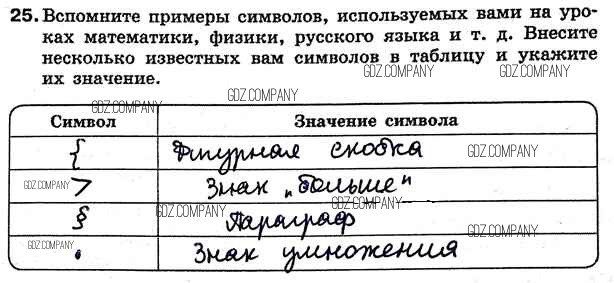 25. Вспомните примеры символов, используемых вами на уро-
ках математики, физики, русского языка и т. д. Внесите
несколько известных вам символов в таблицу и укажите
их значение.
GDZ.COMPANY
GDZ.COMPANY
GDZ.COMPANY
GDZ.COMPANY
Символ Значение символа
{ Фигурная скобка GDZ.COMPANY
GDZ.COMPANY > Знак „больше"
§ GDZ.COMPANY Параграф GDZ.COMPANY
GDZ.COMPANY · Знак умножения GDZ.COMPANY